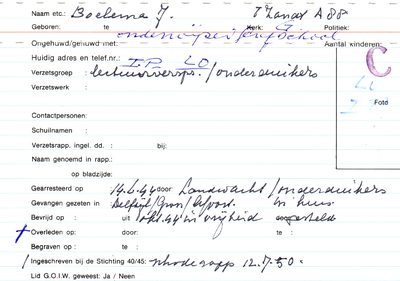 Naam etc.: Boelema J. 't Zandt A 88
Geboren: te Kerk: Politiek:
onderwijzer School
Ongehuwd/gehuwd met: Aantal kinderen:
Huidig adres en telef.nr.: I.P. LO C
Verzetsgroep : lectuurverspr./onderduikers
Verzetswerk :
Foto
Contactpersonen:
Schuilnaam :
Verzetsrapp. ingel. dd. : bij:
Naam genoemd in rapp.:
op bladzijde:
Gearresteerd op : 14.4.44 door: Landwacht/onderduikers
Gevangen gezeten in : Delfzijl/Gron/ in huis
Bevrijd op : uit okt. 44 in vrijheid gesteld
Overleden op: door: te :
Begraven op : te :
Ingeschreven bij de Stichting 40/45: rapp 12.7.50
Lid G.O.I.W. geweest: Ja / Neen